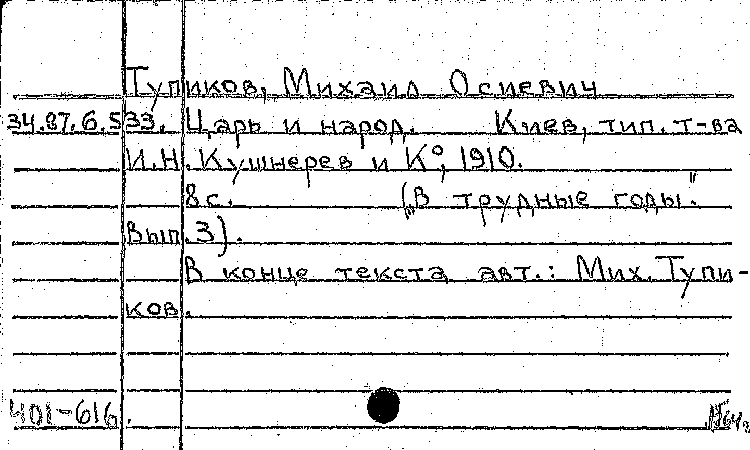 Тупиков, Михаил Осиевич
34.87.6.533. Царь и народ. Киев, тип. т-ва
И.Н. Кушнерев и К°, 1910.
8 с. („В трудные годы."
Вып. 3).
В конце текста авт.: Мих. Тупи-
ков.
401-616.